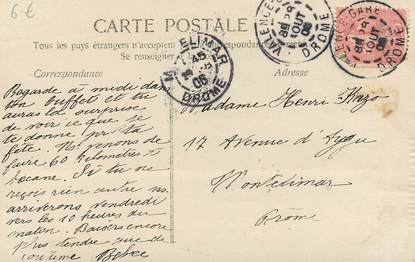 6-€
CARTE POSTALE
Tous les pays étrangers n'acceptent correspondance
Se renseigner
Correspondance
Adresse
VALENCE GARE
AOUT
08
DROME
VALENCE GARE
AOUT
DROME
MONTELIMAR
08
DROME
Regarde à midi dans
ton buffet et tu
auras la surprise
de voir ce que je
te donne pr ta
fête. Ns venons de
faire 60 kilomètres
bécane. Si tu ne
reçois rien autre ns
arriverons vendredi
vers les 10 heures du
matin. Baisers encore
plus tendre que de
coutume.
Madame Henri
17 Avenue d'Aygu
Montélimar
Drôme